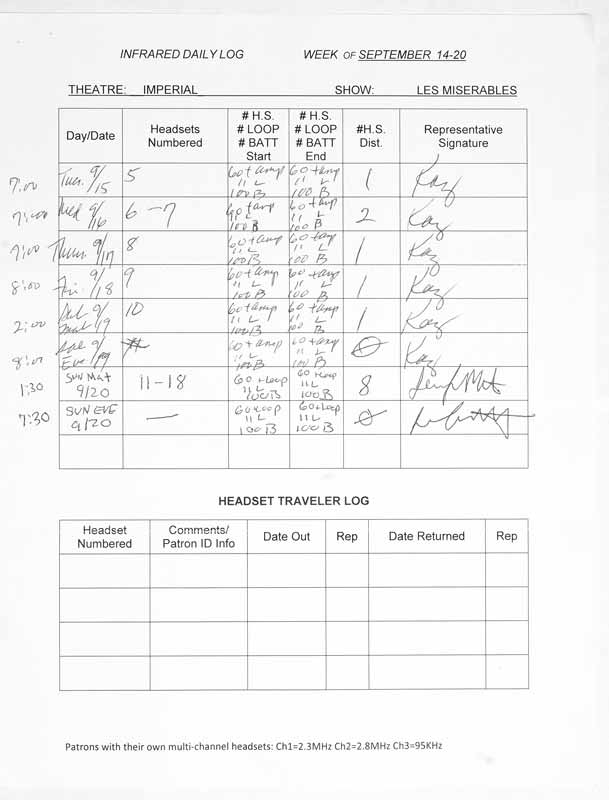 INFRARED DAILY LOG WEEK OF SEPTEMBER 14-20
THEATRE: IMPERIAL SHOW: LES MISERABLES
Day/Date Headsets Numbered # H.S. # LOOP # BATT Start # H.S. # LOOP # BATT End #H.S. Dist. Representative Signature
7:00 Tues. 9/15 5 60 + amp 11 L 100 B 60 + amp 11 L 100 B 1 Kaz
7:00 Wed 9/16 6-7 60 + amp 11 L 100 B 60 + amp 11 L 100 B 2 Kaz
7:00 Thurs. 9/17 8 60 + amp 11 L 100 B 60 + amp 11 L 100 B 1 Kaz
8:00 Fri. 9/18 9 60 + amp 11 L 100 B 60 + amp 11 L 100 B 1 Kaz
2:00 Sat 9/19 Mat 10 60 + amp 11 L 100 B 60 + amp 11 L 100 B 1 Kaz
8:00 Sat 9/19 Eve 60 + amp 11 L 100 B 60 + amp 11 L 100 B 0 Kaz
1:30 SUN MAT 9/20 11-18 60 + Loop 11 L 100 B 60 + Loop 11 L 100 B 8
7:30 SUN EVE 9/20 — 60 + Loop 11 L 100 B 60 + Loop 11 L 100 B 0
HEADSET TRAVELER LOG
Headset Numbered Comments/ Patron ID Info Date Out Rep Date Returned Rep
Patrons with their own multi-channel headsets: Ch1=2.3MHz Ch2=2.8MHz Ch3=95KHz